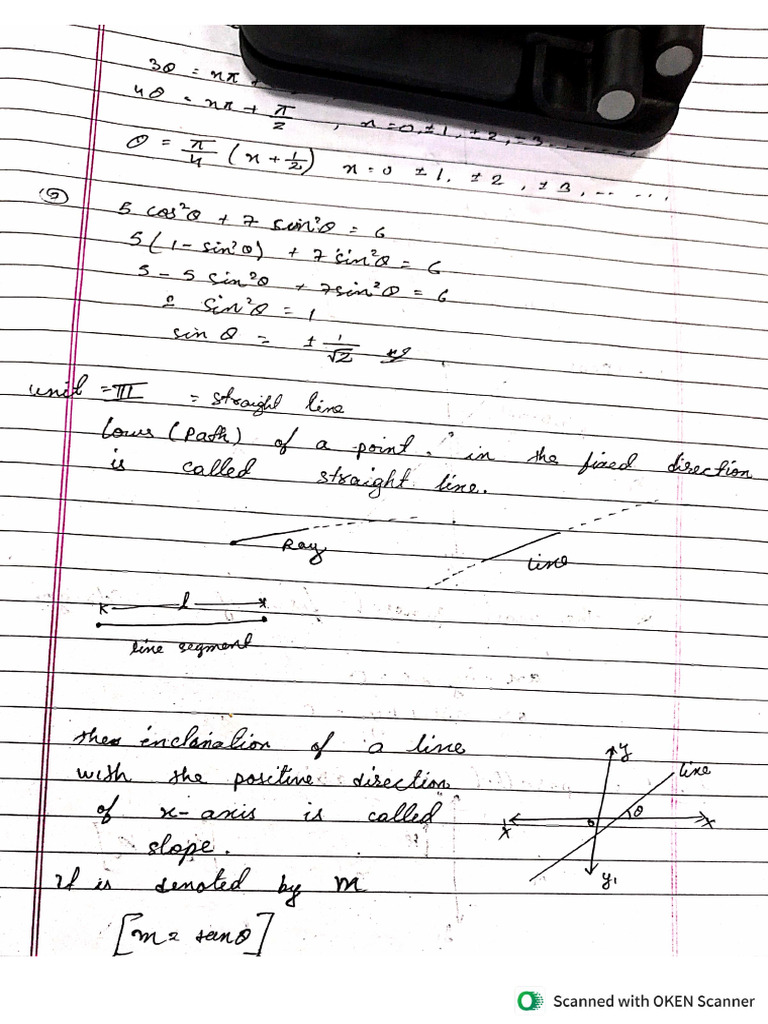 3θ = nπ +
4θ = nπ + π/2 , n = 0, ±1, ±2, ±3, ......,
θ = π/4 (n + 1/2) n = 0 ±1, ±2, ±3, ......,
5 cos²θ + 7 sin²θ = 6
5(1 - sin²θ) + 7 sin²θ = 6
5 - 5 sin²θ + 7 sin²θ = 6
2 sin²θ = 1
sin θ = ± 1/√2
unit = III = straight line
(Path) of a point in the fixed direction
is called straight line.
Ray
line
l
line segment
the inclination of a line
with the positive direction
of x-axis is called
slope.
it is denoted by m
[m = tan θ]
y
line
θ
x
x
y₁
Scanned with OKEN Scanner